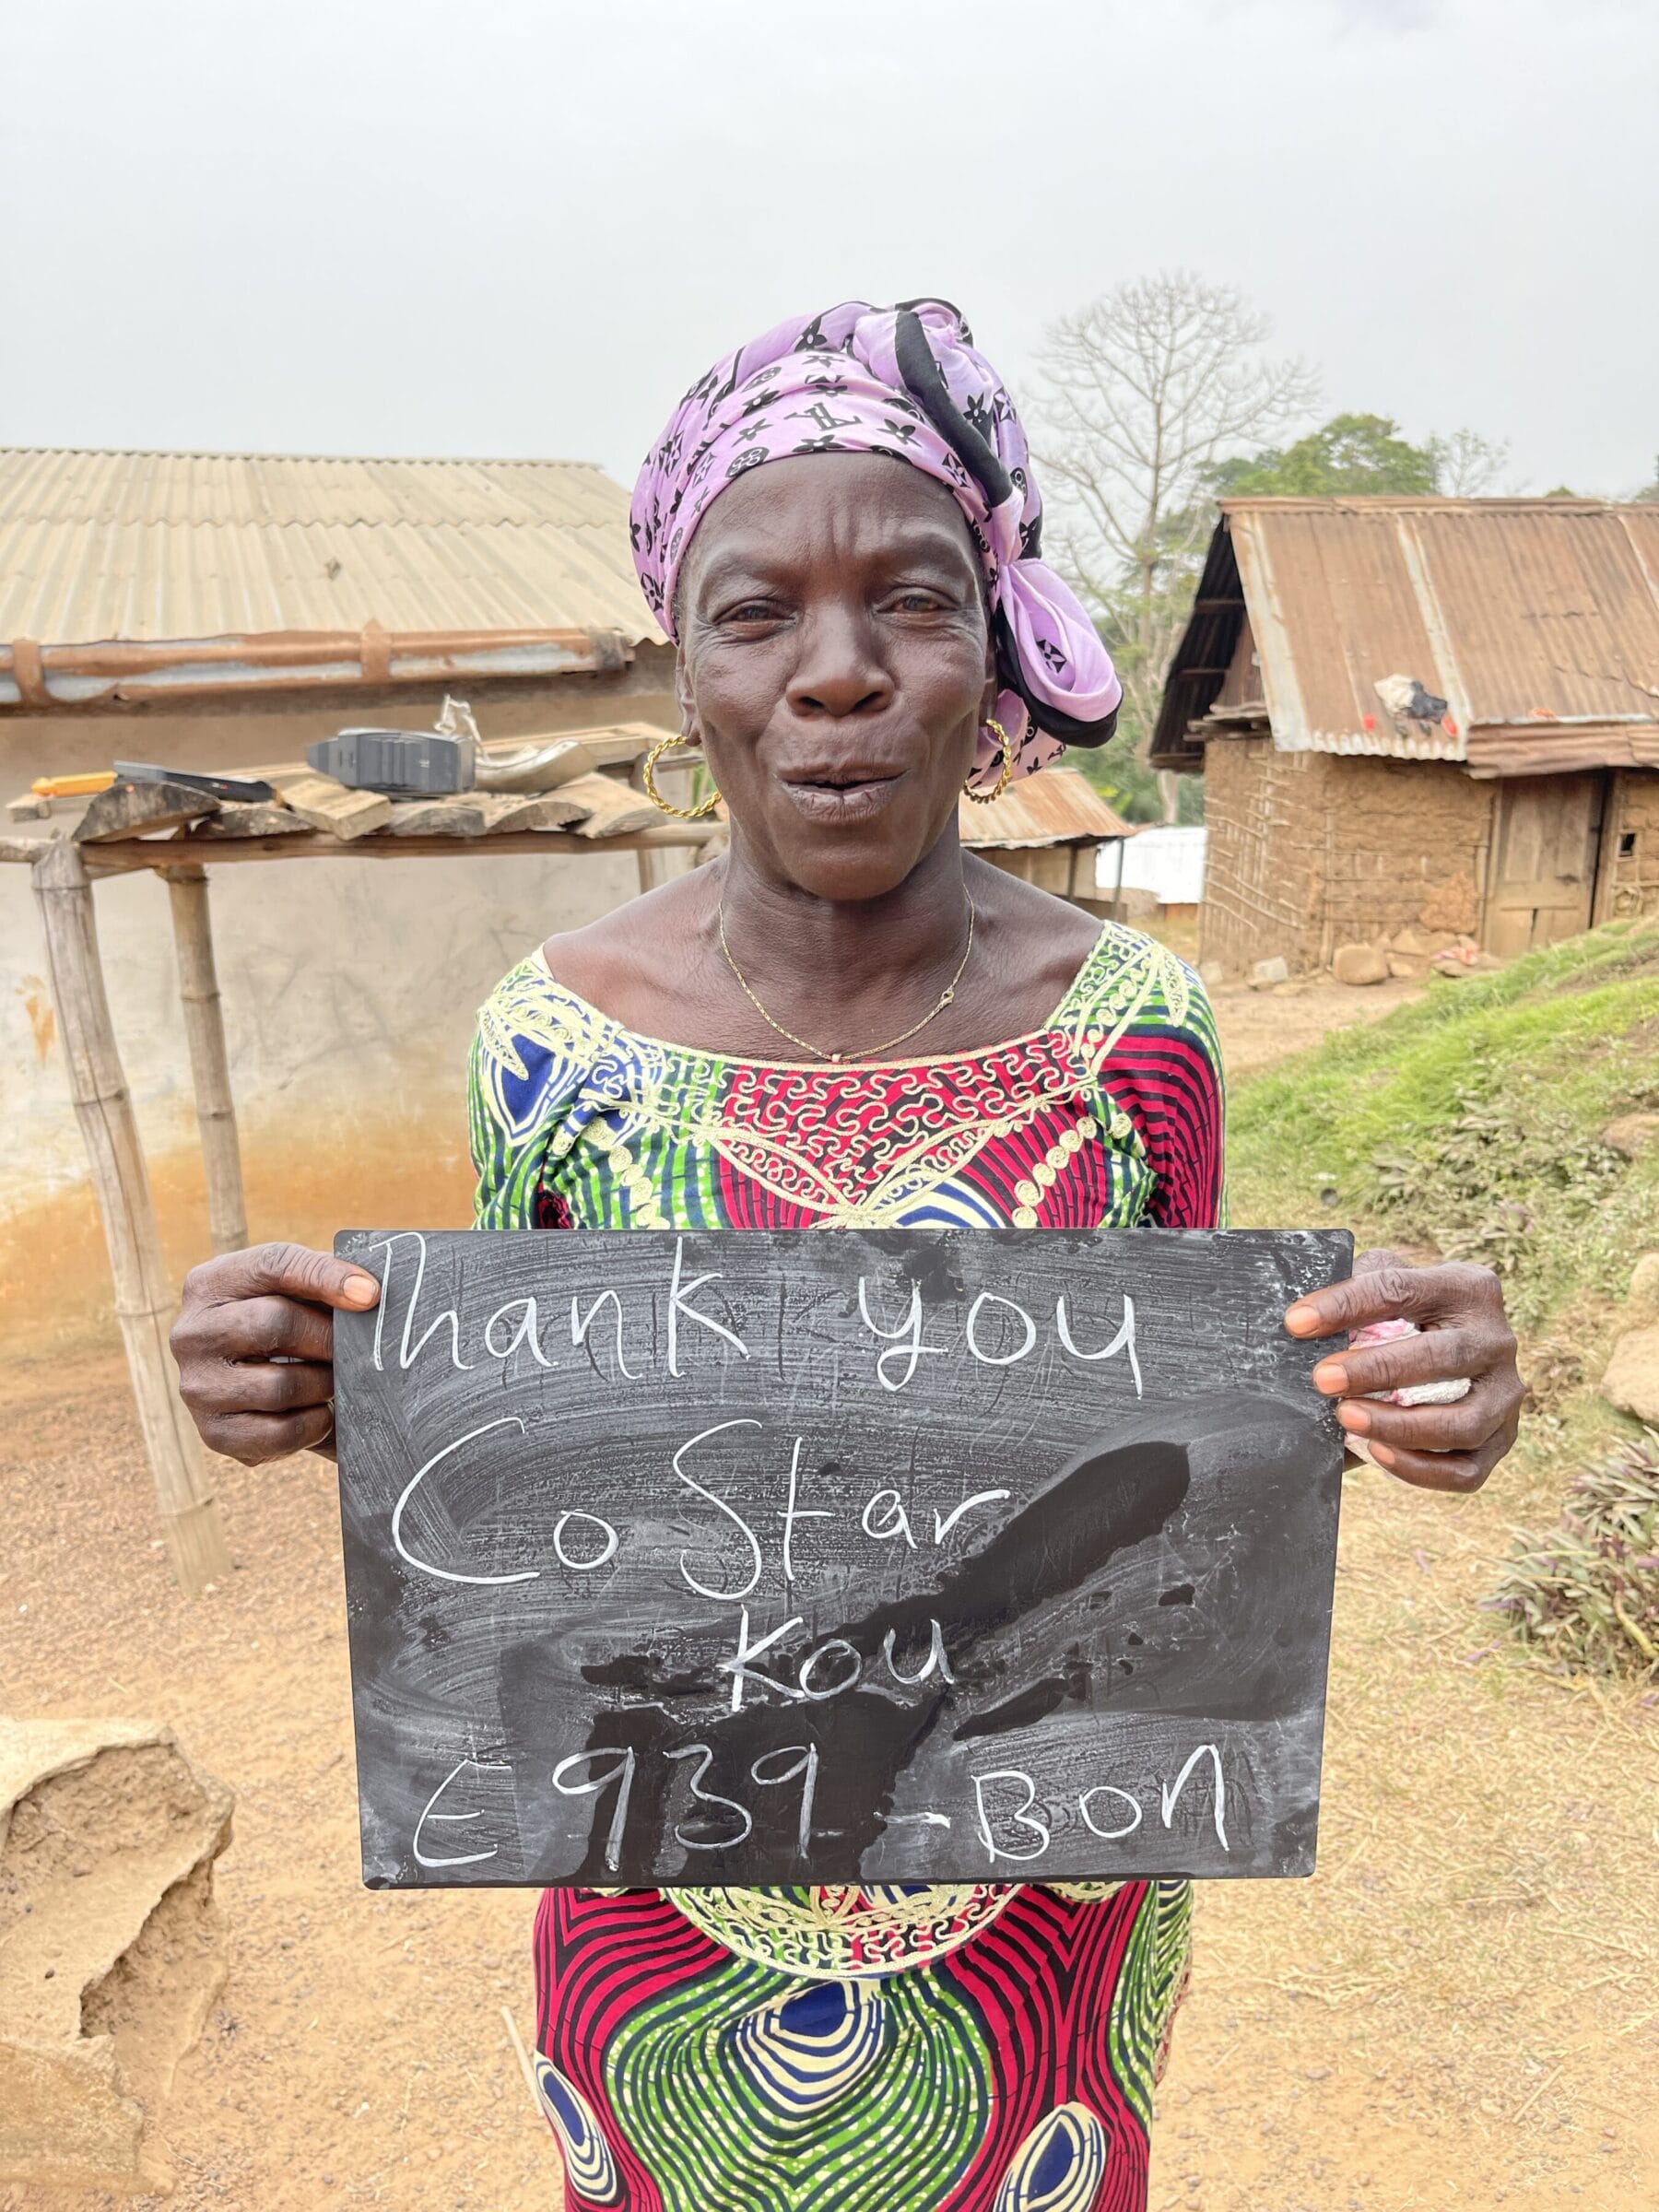 Thank you
Co Star
Kou
E939-Bon